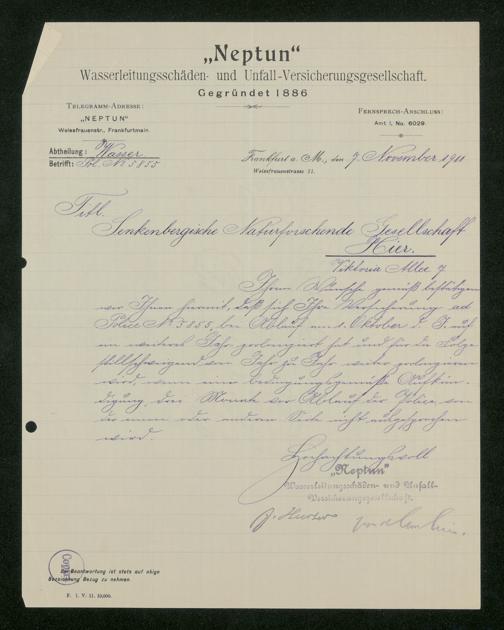 „Neptun“
Wasserleitungsschäden- und Unfall-Versicherungsgesellschaft.
Gegründet 1886
TELEGRAMM-ADRESSE:
„NEPTUN“
Weissfrauenstr. Frankfurtmain.
FERNSPRECH-ANSCHLUSS:
Amt I, No. 6029.
Abtheilung: Wasser
Betrifft: Pol. No 5855
Frankfurt a. M., den 7. November 1911
Weissfrauenstrasse 11.
Titl.
Senkenbergische Naturforschende Gesellschaft
Hier.
Viktoria Allee 7
Ihrem Wunsche gemäß bestätigen
wir Ihnen hiermit, daß sich Ihre Versicherung ad
Police No 5855, bei Ablauf am 1. Oktober d. J. auf
ein weiteres Jahr prolongiert hat und für die Folge
stillschweigend von Jahr zu Jahr weiter prolongieren
wird, wenn eine bedingungsgemäße Aufkün-
digung, drei Monate vor Ablauf der Police, von
der einen oder anderen Seite nicht ausgesprochen
wird.
Hochachtungsvoll
„Neptun“
Wasserleitungsschäden- und Unfall-
Versicherungsgesellschaft.
Copirt
Bei Beantwortung ist stets auf obige
Bezeichnung Bezug zu nehmen.
F. 1. V. 11. 10,000.